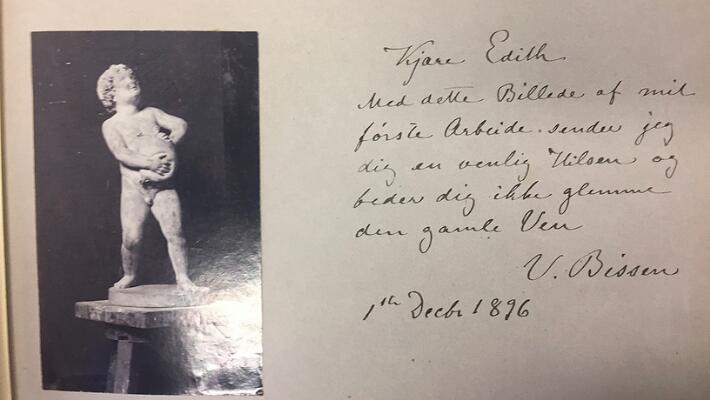 Kjære Edith
Med dette Billede af mit
förste Arbeide sender jeg
dig en venlig Hilsen og
beder dig ikke glemme
den gamle Ven
V. Bissen
1th Decbr 1896